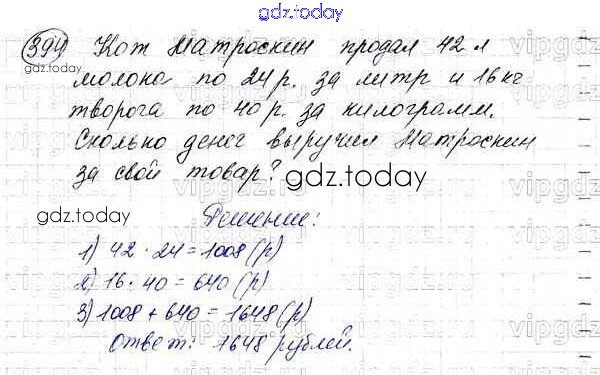 gdz.today
394 Кот Матроскин продал 42 л
gdz.today
молока по 24 р. за литр и 16 кг
творога по 40 р. за килограмм.
Сколько денег выручил Матроскин
за свой товар? gdz.today
gdz.today
Решение:
1) 42 · 24 = 1008 (р)
2) 16 · 40 = 640 (р)
3) 1008 + 640 = 1648 (р)
Ответ: 1648 рублей.